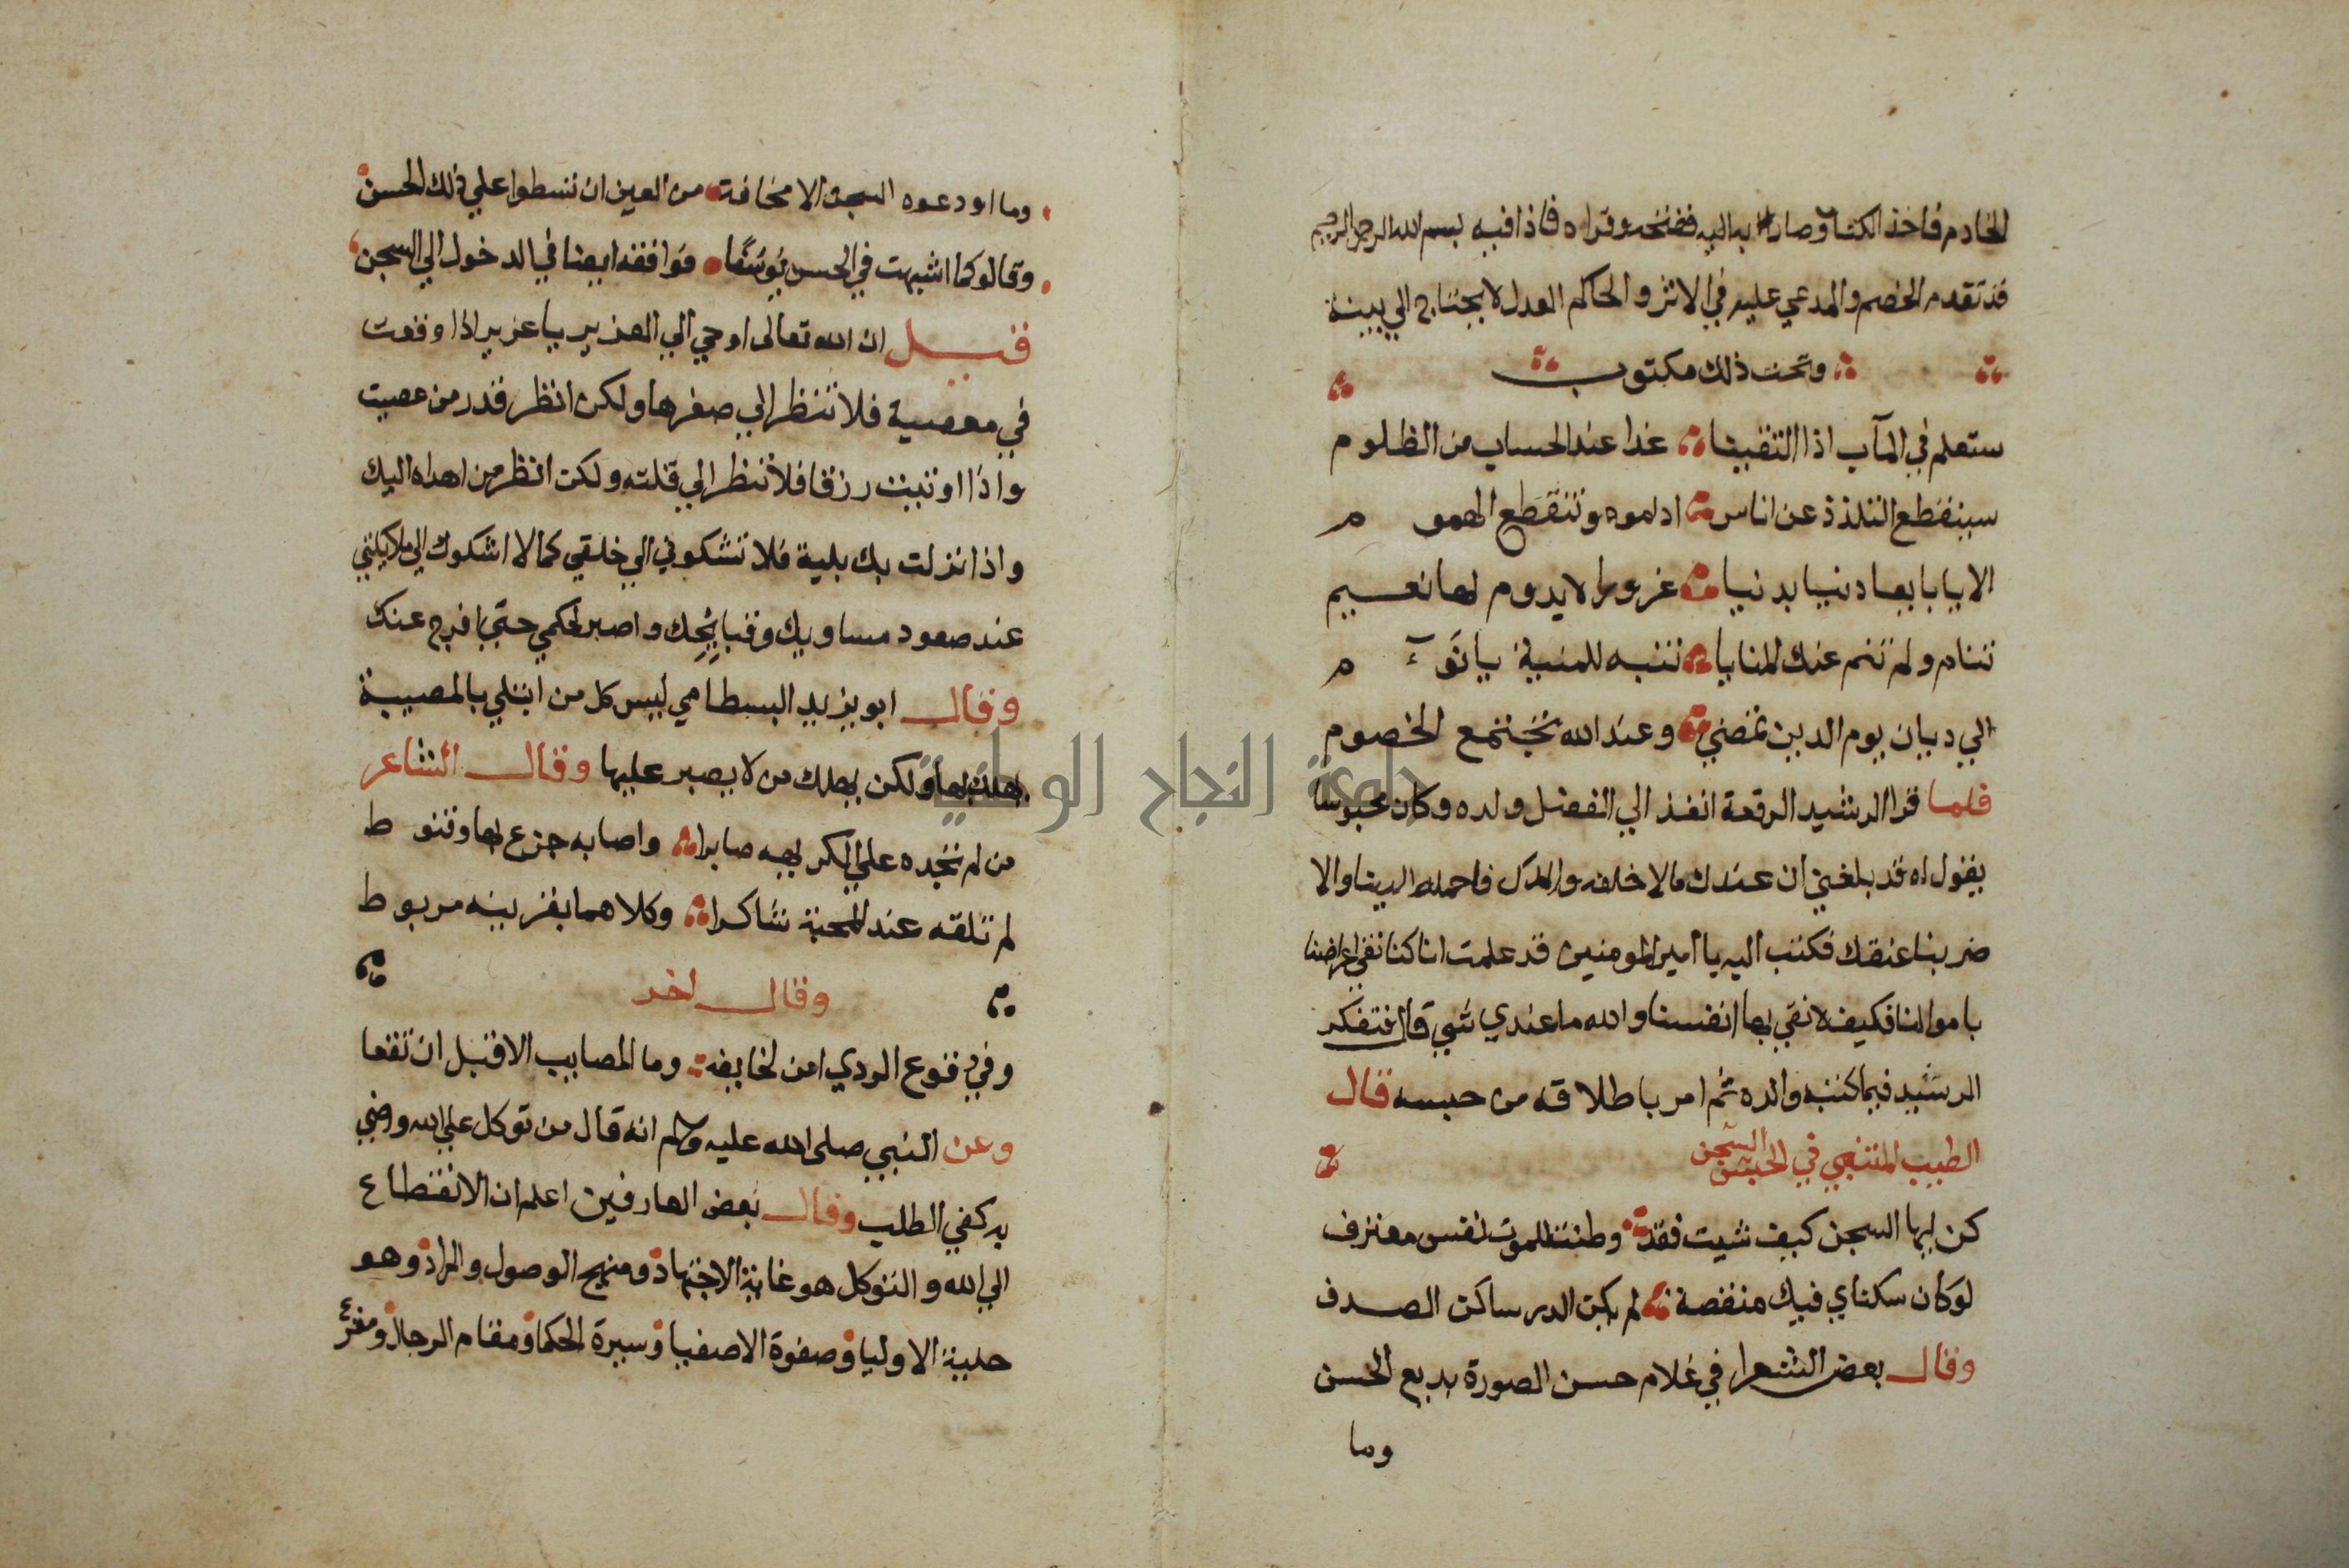 الخادم فاخذ الكتاب وصار به اليه ففتحه وقراه فاذا فيه بسم الله الرحمن الرحيم
قد تقدم الخصم والمدعي عليه في الاثر والحاكم العدل لا يحتاج الي بينة
وتحت ذلك مكتوب
ستعلم في المآب اذا التقينا غدا عند الحساب من الظلوم
سينقطع التلذذ عن اناس اداموه وتنقطع الهمو م
الا يا بايعا دنيا بدنيا غرورا لا يدوم لها نعسيم
تنام ولم تنم عنك المنايا تنبه للمنية يا نوٓء م
الي ديان يوم الدين نمضي وعند الله تجتمع الخصوم
فلما قرا الرشيد الرقعة انفذ الي الفضل ولده وكان محبوسا
يقول له قد بلغني ان عندك مالا خلفه والدك فاحمله الينا والا
ضربنا عنقك فكتب اليه يا امير المومنين قد علمت انا كنا نقي اعراضنا
باموالنا فكيف لا نقي بها انفسنا والله ما عندي شي قال فتفكر
الرشيد فيما كتبه والده ثم امر باطلاقه من حبسه قال
الطيب المتنبي في الحبس السجن
كن ايها السجن كيف شيت فقد وطنت للموت نفس معترف
لو كان سكناي فيك منقصة لم يكن الدر ساكن الصدف
وقال بعض الشعرا في غلام حسن الصورة بديع الحسن
وما
وما اودعوه السجن الا مخافة من العين ان تسطوا علي ذلك الحسن
وقالو كما اشبهت في الحسن يوسفا فوافقه ايضا في الدخول الي السجن
قيل ان الله تعالى اوحي الي العزير يا عزير اذا وقعت
في معصية فلا تنظر الي صغرها ولكن انظر قدر من عصيت
واذا اوتيت رزقا فلا تنظر الي قلته ولكن انظر من اهداه اليك
واذا نزلت بك بلية فلا تشكوني الي خلقي كما لا اشكوك الي ملايكتي
عند صعود مساويك وقبايحك واصبر لحكمي حتي افرج عنك
وقال ابو يزيد البسطامي ليس كل من ابتلي بالمصيبة
يهلك بها ولكن يهلك من لا يصبر عليها وقال الشاعر
من لم تجده علي الكريهه صابرا واصابه جزع لها وقنو ط
لم تلقه عند المحبة شاكرا وكلاهما بقرينه مربو ط
وقال اخر
وفي وقوع الردي امن لخايفه وما المصايب الا قبل ان تقعا
وعن النبي صلى الله عليه وسلم انه قال من توكل علي الله ورضي
به كفي الطلب وقال بعض العارفين اعلم ان الانقطاع
الي الله والتوكل هو غاية الاجتهاد ومنهج الوصول والمراد وهو
حلية الاوليا وصفوة الاصفيا وسيرة الحكما ومقام الرجال ومفزع
جامعة النجاح الوطنية